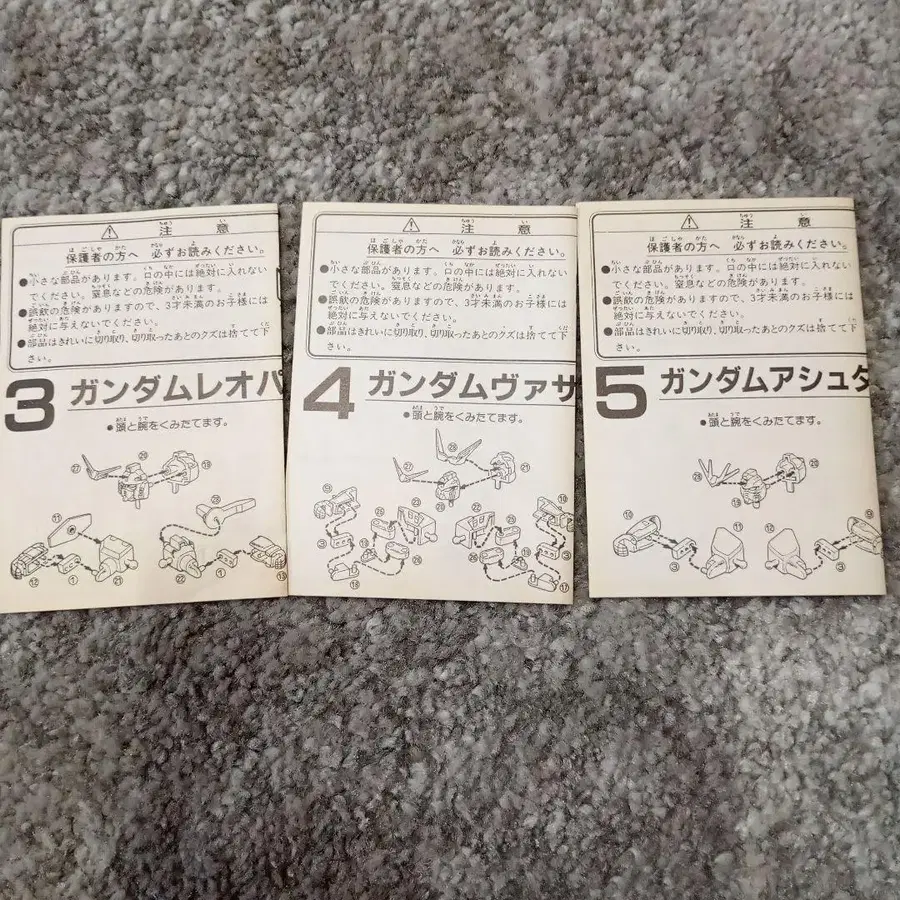 注 意
保護者の方へ 必ずお読みください。
●小さな部品があります。口の中には絶対に入れない
でください。窒息などの危険があります。
●誤飲の危険がありますので、3才未満のお子様には
絶対に与えないでください。
●部品はきれいに切り取り、切り取ったあとのクズは捨てて下
さい。
3 ガンダムレオパ
●頭と腕をくみたてます。
27 20 19
11 28
12 1 21 22 1 13
注 意
保護者の方へ 必ずお読みください。
●小さな部品があります。口の中には絶対に入れない
でください。窒息などの危険があります。
●誤飲の危険がありますので、3才未満のお子様には
絶対に与えないでください。
●部品はきれいに切り取り、切り取ったあとのクズは捨てて下
さい。
4 ガンダムヴァサ
●頭と腕をくみたてます。
注 意
保護者の方へ 必ずお読みください。
●小さな部品があります。口の中には絶対に入れない
でください。窒息などの危険があります。
●誤飲の危険がありますので、3才未満のお子様には
絶対に与えないでください。
●部品はきれいに切り取り、切り取ったあとのクズは捨てて下
さい。
5 ガンダムアシュタ
●頭と腕をくみたてます。